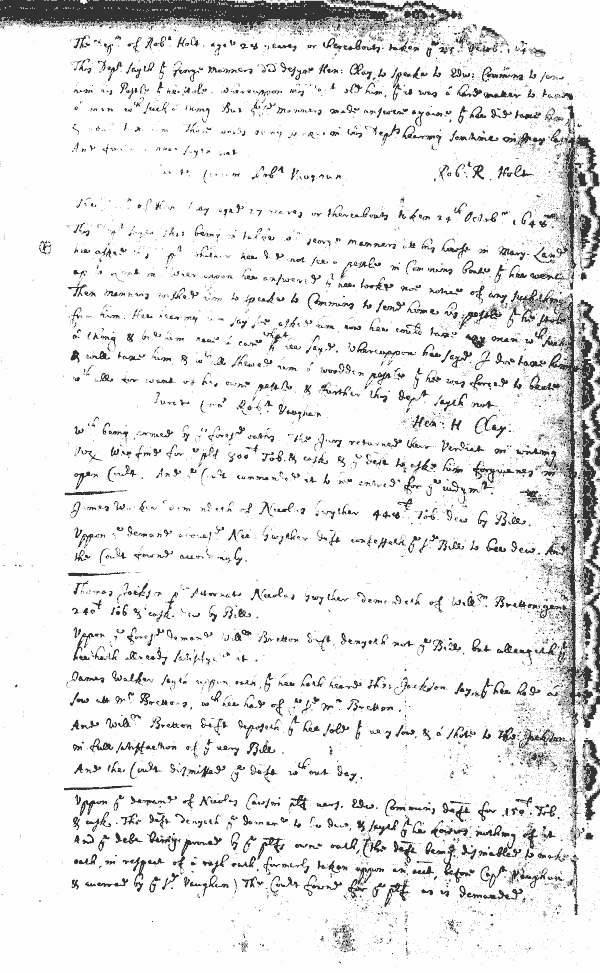 The of Robt Holt aged 28 yeares or thereabouts taken ye 25th Octob.
This Dept sayth yt George Manners did desyre Hen: Clay, to speake to Edw: Commins to
him his Pestle whereuppon his told him, yt it was a hard matter to taxe
a man wth such a thing But ye sd manners made answere againe, yt hee did taxe him
& him These words in his Depts hearing sometime in May last
And further sayth not
Jurat Coram Robt Vaughan Robt R Holt
The of Hen: Clay aged 27 yeares or thereabouts taken 24th Octobr 1648
This Dept sayth that being in talke wth George manners att his howse in Mary-Land
hee asked this Dept whether hee did not see a pestle in Commins boate yt hee went
up wherupon hee answered yt hee tooke noe notice of any such thing
Then manners wished him to speake to Commins to send home his pestle yt he stole
from him. Hee hearing him say soe asked him how hee could taxe any man wth such
a thing & bid him have a care what hee sayd. Whereuppon hee sayd I doe taxe him
& will taxe him & wthall shewed him a wodden pestle yt hee was forced to beate
wthall for want of his owne pestle & further this dept sayth not.
Jurat Corã Robt Vaughan Hen: H Clay.
Wch being proved by ye foresd oathes. The Jury returned their Verdict in writing
viz. Wee find for ye plt 800l Tob. & cask & ye deft to aske him forgivenes in
open Court. And ye Court commanded it to be entred for ye judgmt.
James Walker demandeth of Nicolas Gwyther 448l Tob. dew by Bill.
Uppon ye demand aforesd Nic: Gwyther deft confesseth ye sd Bill to bee dew. And
the Court fownd accordingly.
Thomas Jackson pr Attornate Nicolas Gwyther demandeth of Willm Bretton gent
240l Tob & cask. dew by Bill.
Uppon ye foresd demand Willm Bretton deft denyeth not ye Bill, but alleageth yt
hee hath allready satisfyed it.
James Walker sayth uppon oath, yt hee hath heard Tho: Jackson say, yt hee had a
sow att Mr Brettons, wch hee had of ye sd Mr Bretton.
And Willm Bretton deft deposeth yt hee sold ye very sow, & a shote to Tho: Jackson
in full satisfaction of ye very Bill.
And the Court dismissed ye deft wthout day.
Uppon ye demand of Nicolas Causin plt vers. Edw. Commins deft for 150l Tob.
& cask. The deft denyeth ye demand to be dew, & sayth yt hee knows nothing of it
And ye debt being proved by ye plts owne oath, (the deft being disinabled to make
oath, in respect of a rash oath, formerly taken uppon an acct, before Capt Vaughan
& averred by ye sd Vaughan) The Court fownd for ye plt as is demanded.